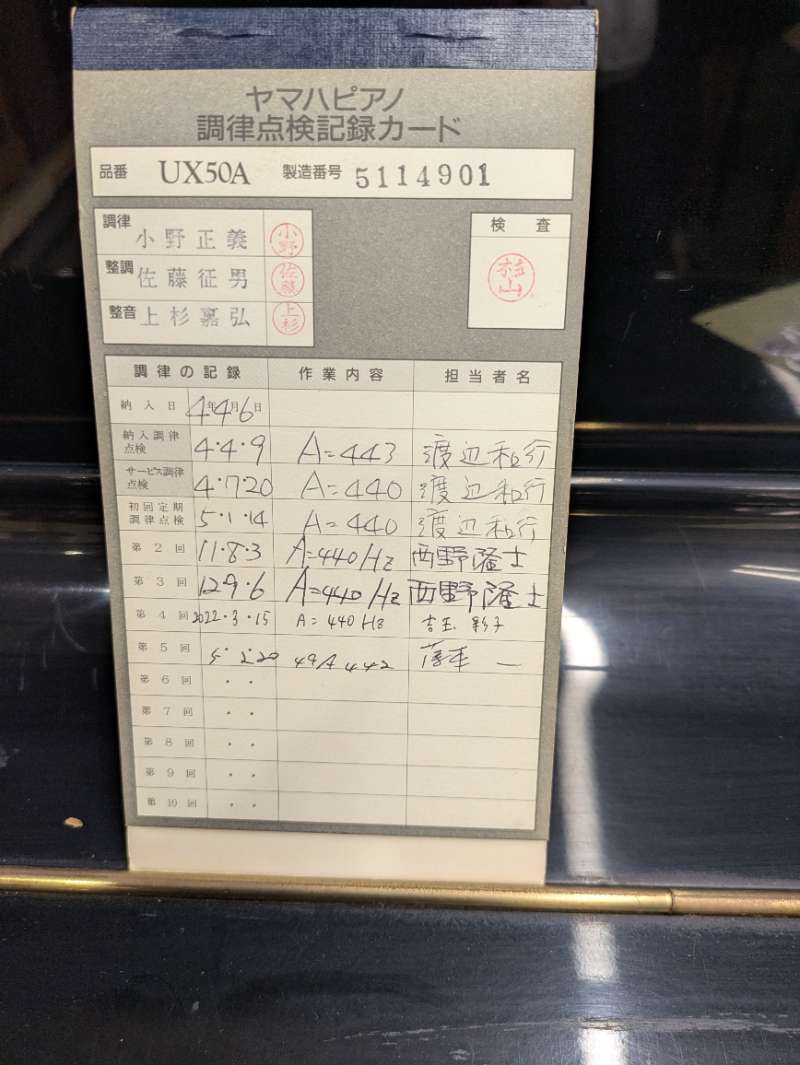 ヤマハピアノ
調律点検記録カード
品番 UX50A 製造番号 5114901
調律 小野正義 小野
整調 佐藤征男 佐藤
整音 上杉嘉弘 上杉
検査
杉山
調律の記録 作業内容 担当者名
納入日 4年4月6日
納入調律点検 4・4・9 A=443 渡辺和行
サービス調律点検 4・7・20 A=440 渡辺和行
初回定期調律点検 5・1・14 A=440 渡辺和行
第2回 11・8・3 A=440Hz 西野隆士
第3回 12・9・6 A=440Hz 西野隆士
第4回 2022・3・15 A=440Hz
第5回 5・2・20 49A 442
第6回 ・ ・
第7回 ・ ・
第8回 ・ ・
第9回 ・ ・
第10回 ・ ・